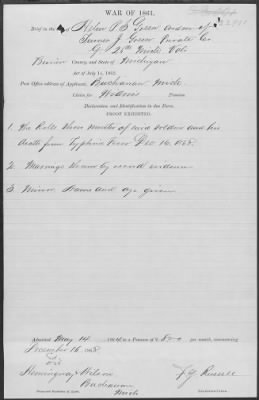 WAR OF 1861.
Brief in the case of Helen P. S. Green widow of
James J. Green Private Co.
G 25th Mich Vols
County, and State of Michigan
Act of July 14, 1862.
Post Office address of Applicant, Buchanan Mich
Claim for Widow's Pension.
Declaration and Identification in due Form.
PROOF EXHIBITED.
1. The Rolls show muster of said soldier and his
death from Typhoid Fever Dec 16.
2 Marriage shown by record evidence
3 Minor. Name and age given
Admitted May 14 to a Pension of $8.00 per month, commencing
December 16
Hemingway & Wilson
Buchanan
Mich